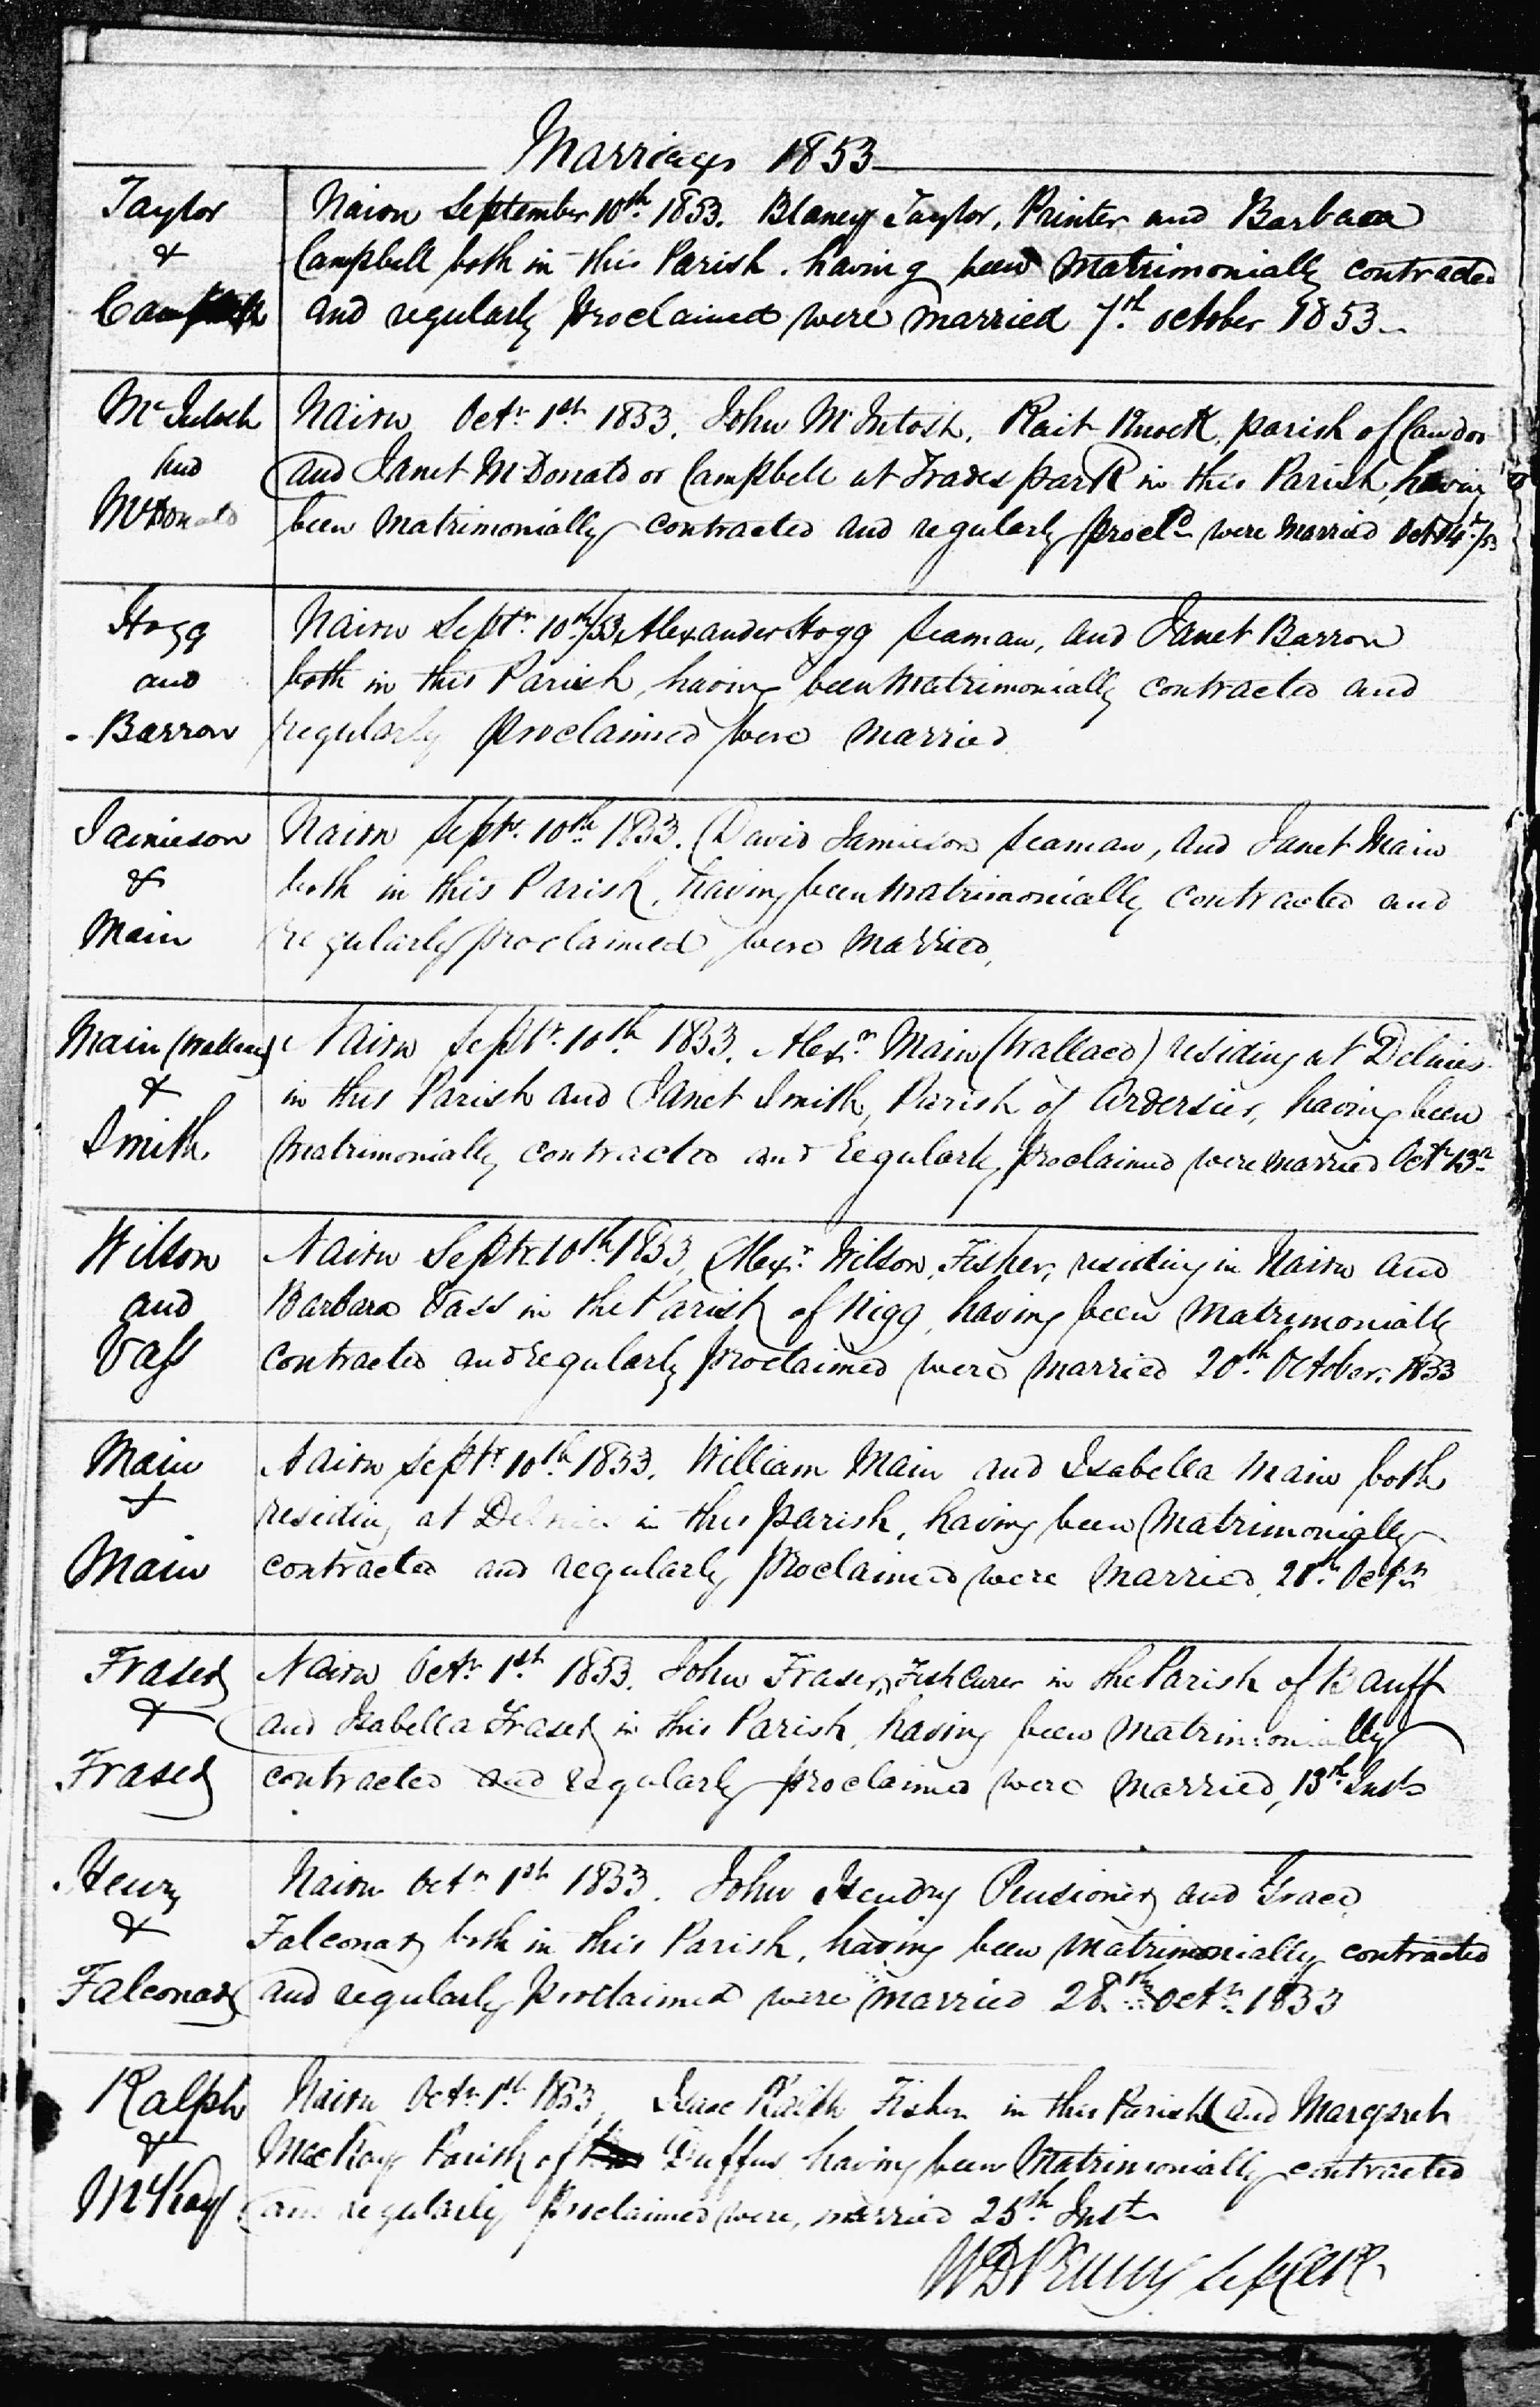 Marriages 1853
Taylor
&
Campbell
Nairn September 10th 1853. Blaney Taylor, Printer and Barbara
Campbell both in this Parish. having been Matrimonially contracted
and regularly Proclaimed were married 7th October 1853
McIntosh
And
McDonald
Nairn Octr 1st 1853. John McIntosh, Rait Knock, parish of Cawdor
and Janet McDonald or Campbell at Tradespark in this Parish, having
been Matrimonially contracted and regularly procld were Married Oct 14th/53
Hogg
and
Barron
Nairn Septr 10th/53 Alexander Hogg Seaman, and Janet Barron
both in this Parish, having been Matrimonially contracted and
regularly proclaimed were Married
Jamieson
&
Main
Nairn Septr 10th 1853. David Jamieson Seaman, And Janet Main
both in this Parish, having been Matrimonially contracted and
regularly proclaimed were Married.
Main (Wallace)
&
Smith
Nairn Septr 10th 1853. Alexr Main (Wallace) residing at Delnies
in this Parish and Janet Smith, Parish of Ardersier, having been
Matrimonially contracted and regularly proclaimed were Married Octr 13th
Wilson
and
Vass
Nairn Septr 10th 1853, Alexr Wilson, Fisher, residing in Nairn and
Barbara Vass in the Parish of Nigg, having been Matrimonially
contracted and regularly proclaimed were Married 20th October. 1853
Main
&
Main
Nairn Septr 10th 1853. William Main and Isabella Main both
residing at Delnies in this parish, having been Matrimonially
contracted and regularly Proclaimed were Married, Octr
Fraser
&
Fraser
Nairn Octr 1st 1853. John Fraser, Fishcurer in the Parish of Banff
and Isabella Fraser in this Parish, having been Matrimonially
contracted and regularly proclaimed were Married, 13th Inst
Henry
&
Falconar
Nairn Octr 1st 1853. John Hendry Pensioner and Grace
Falconar both in this Parish, having been Matrimonially contracted
and regularly Proclaimed were Married 28th Octr 1853
Ralph
&
McKay
Nairn Octr 1st 1853, Isaac Ralph Fisher in this Parish and Margaret
MacKay Parish of Duffus having been Matrimonially contracted
and regularly Proclaimed were, married 25th Inst
WD Penny